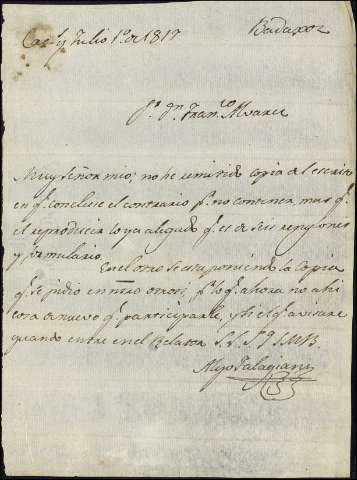 Cac.s y Julio 1.º de 1817 Badaxoz
S.r D.n Fran.co Alvarez
Muy Señor mio; no he remitido copia del escrito
en q.e concluye el contrario p.r no contener mas q.e
el reproducir lo ya alegado q.e es de seis renglones
y formulario.
En el otro se esta poniendo la copia
q.e se pidio en ntro otrosi, p.r lo q.e ahora no ahi
cosa de nuevo q.e participarle, y si el q.e avisare
quando entre en el Relator S. S. S.q. S.M.B.
Alejo